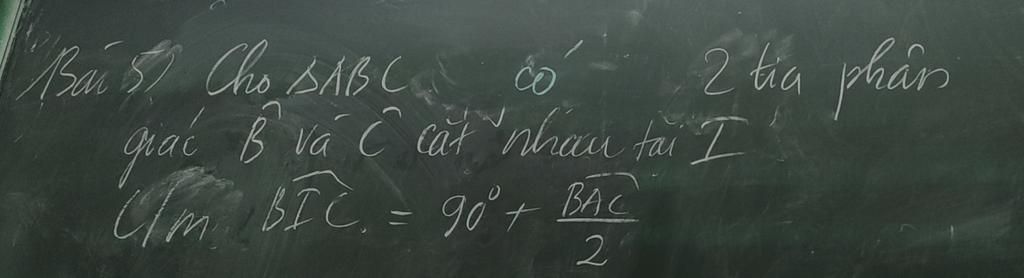 Bài 5) Cho ΔABC có 2 tia phân
giác B̂ và Ĉ cắt nhau tại I
C/m BIC̑ = 90° + BAC̑/2